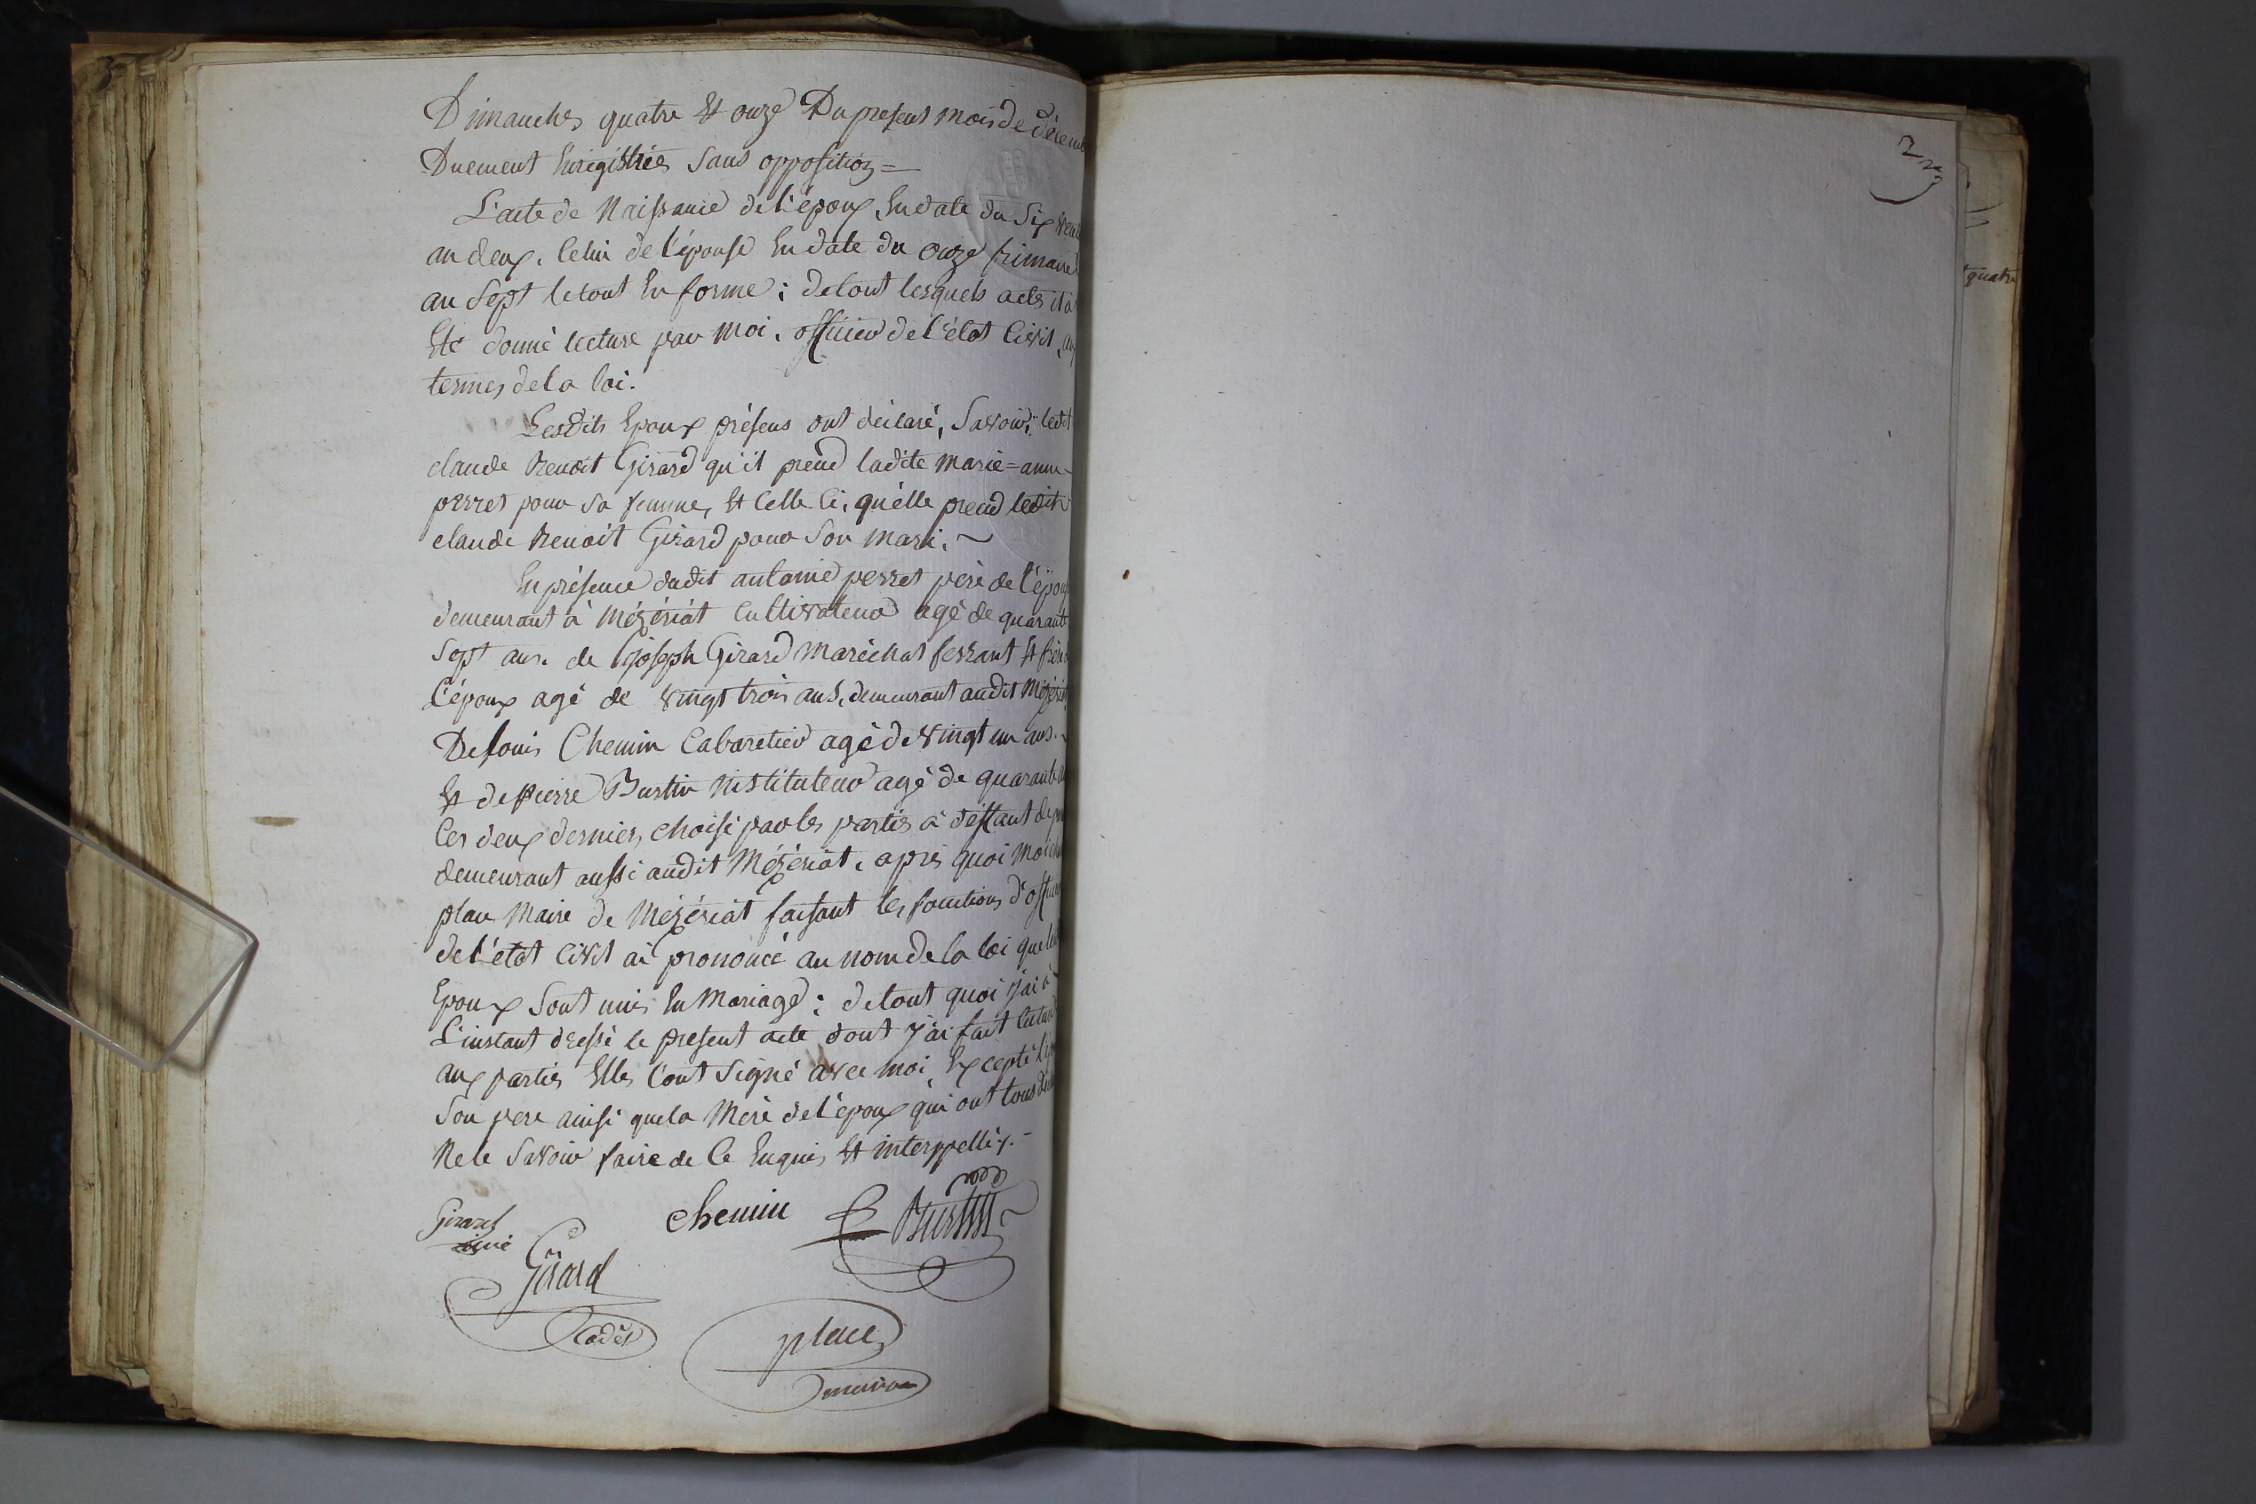 Dimanches quatre Et onze Du present mois de décemb
Duement Enregistrées sans opposition =
L'acte de Naissance de l'époux, En date du Six
an deux. Celui de l'épouse En date du onze frimaire
an Sept le tout En forme ; de tout lesquels actes il a
Eté donné lecture par moi. officier de l'état Civil, aux
termes de la loi.
Lesdits Epoux présens ont déclaré, Savoir, ledit
claude Benoit Girard qu'il prend ladite marie = anne
perret pour sa femme, Et Celle Ci, qu'elle prend ledit
claude Benoit Girard pour Son mari. ~
En présence dudit antoine perret pere de l'épouse
demeurant à Mézériat Cultivateur agé de quarante
Sept ans. de joseph Girard maréchal ferrant Et frère
l'époux agé de vingt trois ans, demeurant audit Mézériat
De Louis Chemin Cabaretier agé de vingt un ans. ~
Et de pierre Burtin Instituteur agé de quarante
Ces deux derniers choisi par les parties à deffaut de
demeurant aussi audit Mézériat. après quoi moi
place Maire de Mézériat faisant les fonctions d'officier
de l'état Civil ai prononcé au nom de la loi que
Epoux Sont unis En Mariage ; de tout quoi j'ai à
L'instant dressé le present acte dont j'ai fait lecture
aux parties Elles l'ont Signé avec moi, Excepté
Son pere ainsi que la Mere de l'époux qui ont tous
Ne le Savoir faire de Ce Enquis Et interppellés. -
Girard
ainé
chemin
Burtin
Girard
Cadet
place
maire
quatre